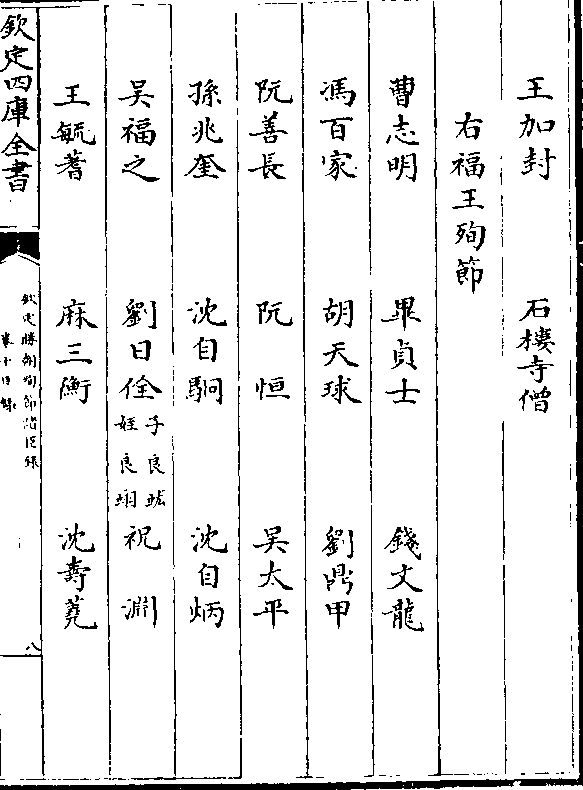 王加封　石樓寺僧
右福王殉節
曹志明　畢貞士　錢文龍
馮百家　胡天球　劉鼎甲
阮善長　阮恒　吴太平
孫兆奎　沈自駉　沈自炳
吴福之　劉日佺 子良 姪良翊　祝淵
王毓蓍　麻三衡　沈壽蕘
欽定四庫全書
欽定勝朝殉節諸臣録
卷十目録
八